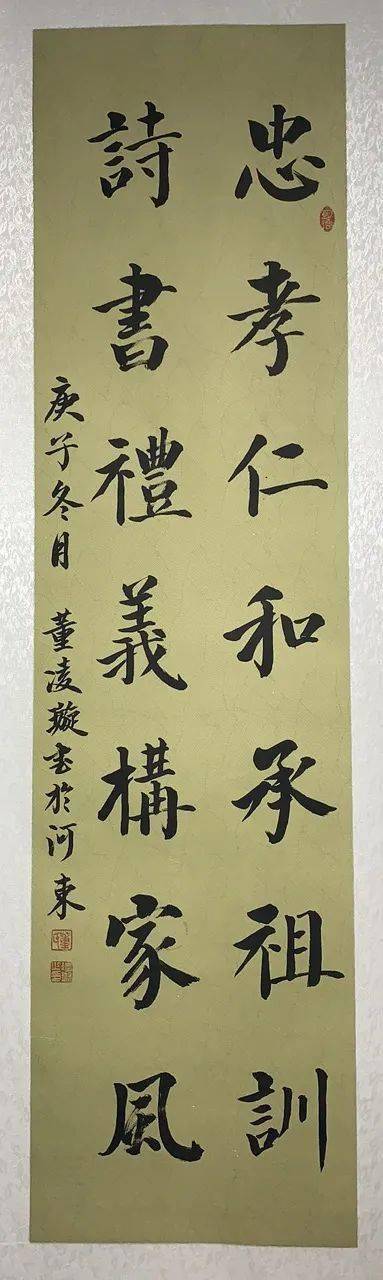 忠孝仁和承祖訓
詩書禮義構家風
庚子冬月 董凌璇书於河東